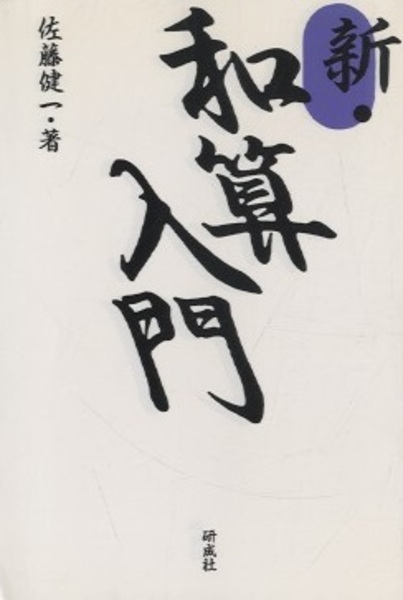 新・
和算
入門
佐藤健一・著
研成社